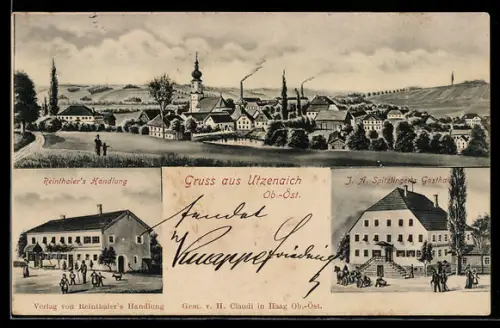 Reinthaler's Handlung
Gruss aus Utzenaich
Ob.-Öst.
J. A. Spitzlinger's Gasthaus
sendet
Knappe Friedrich
Verlag von Reinthaler's Handlung
Gem. v. H. Claudi in Haag Ob.-Öst.